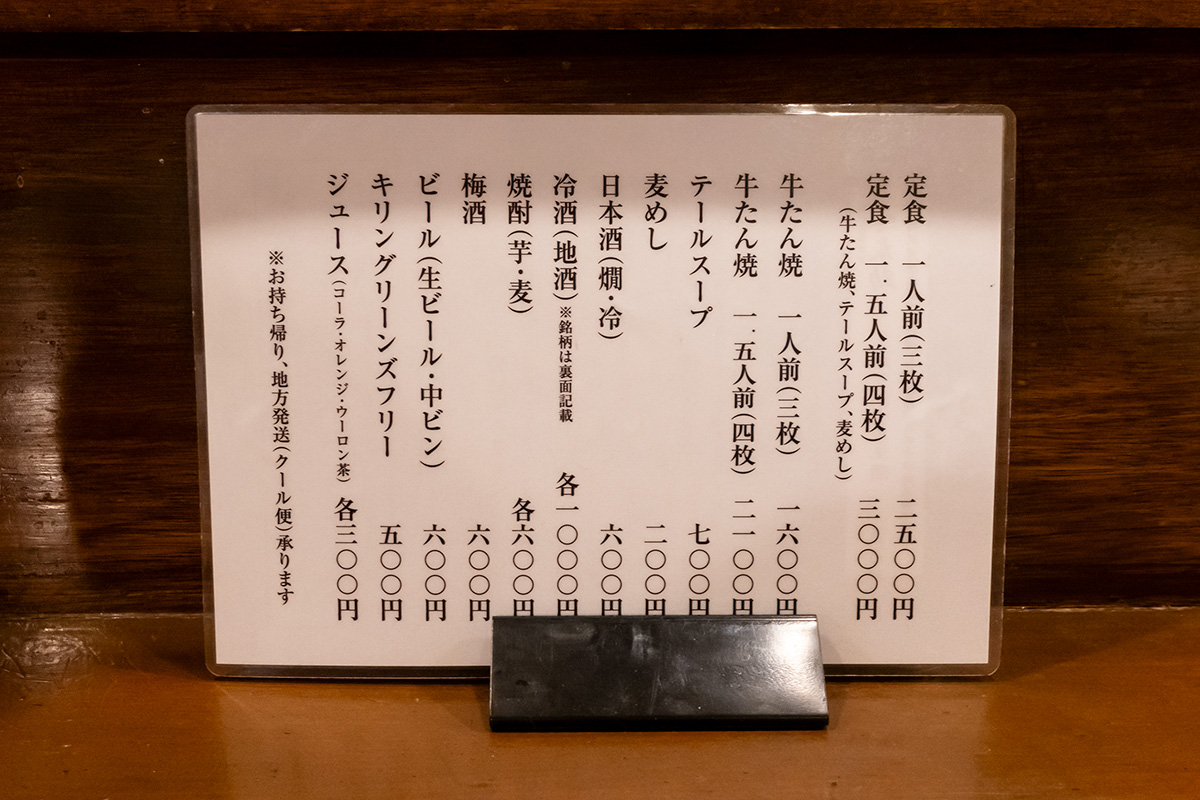 定食　一人前(三枚)　二五〇〇円
定食　一.五人前(四枚)　三〇〇〇円
(牛たん焼、テールスープ、麦めし)
牛たん焼　一人前(三枚)　一六〇〇円
牛たん焼　一.五人前(四枚)　二一〇〇円
テールスープ　七〇〇円
麦めし　二〇〇円
日本酒(燗・冷)　六〇〇円
冷酒(地酒)※銘柄は裏面記載　各一〇〇〇円
焼酎(芋・麦)　各六〇〇円
梅酒　六〇〇円
ビール(生ビール・中ビン)　六〇〇円
キリングリーンズフリー　五〇〇円
ジュース(コーラ・オレンジ・ウーロン茶)　各三〇〇円
※お持ち帰り、地方発送(クール便)承ります